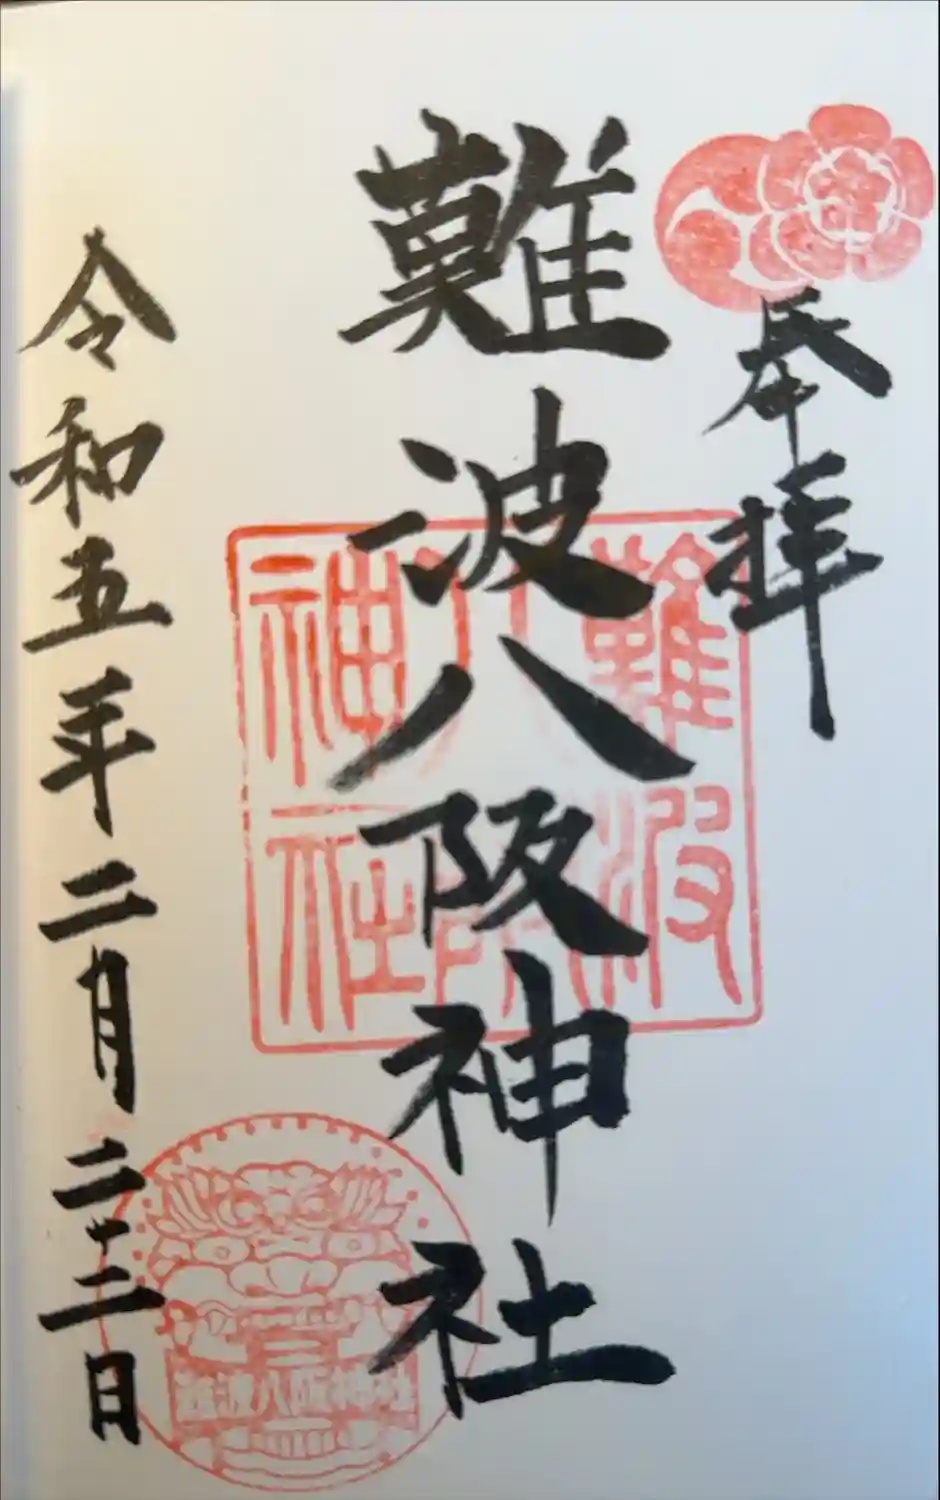 奉拝
難波八阪神社
難波八阪神社
難波八阪神社
令和五年二月二十二日